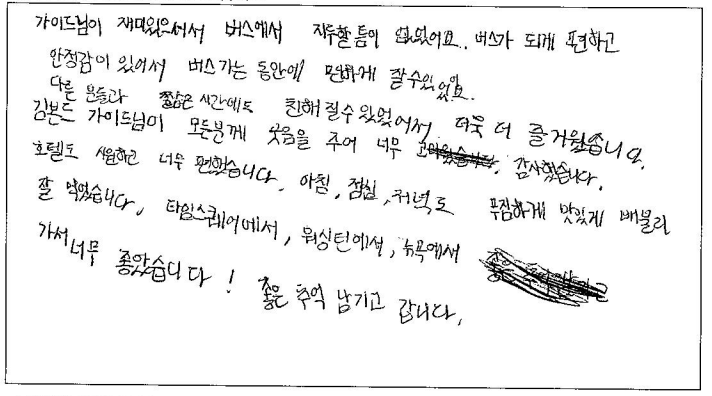 가이드님이 재미있으셔서 버스에서 지루할 틈이 없었어요.. 버스가 되게 편하고
안정감이 있어서 버스 가는 동안에 편하게 잘 수 있었어요.
다른 분들과 짧은 시간에도 친해질 수 있었어서 더욱 더 즐거웠습니다.
김본드 가이드님이 모든분께 웃음을 주어 너무 감사했습니다.
호텔도 시원하고 너무 편했습니다. 아침, 점심, 저녁도 푸짐하게 맛있게 배불리
잘 먹었습니다, 타임스퀘어에서, 워싱턴에서, 뉴욕에서
가서 너무 좋았습니다! 좋은 추억 남기고 갑니다.